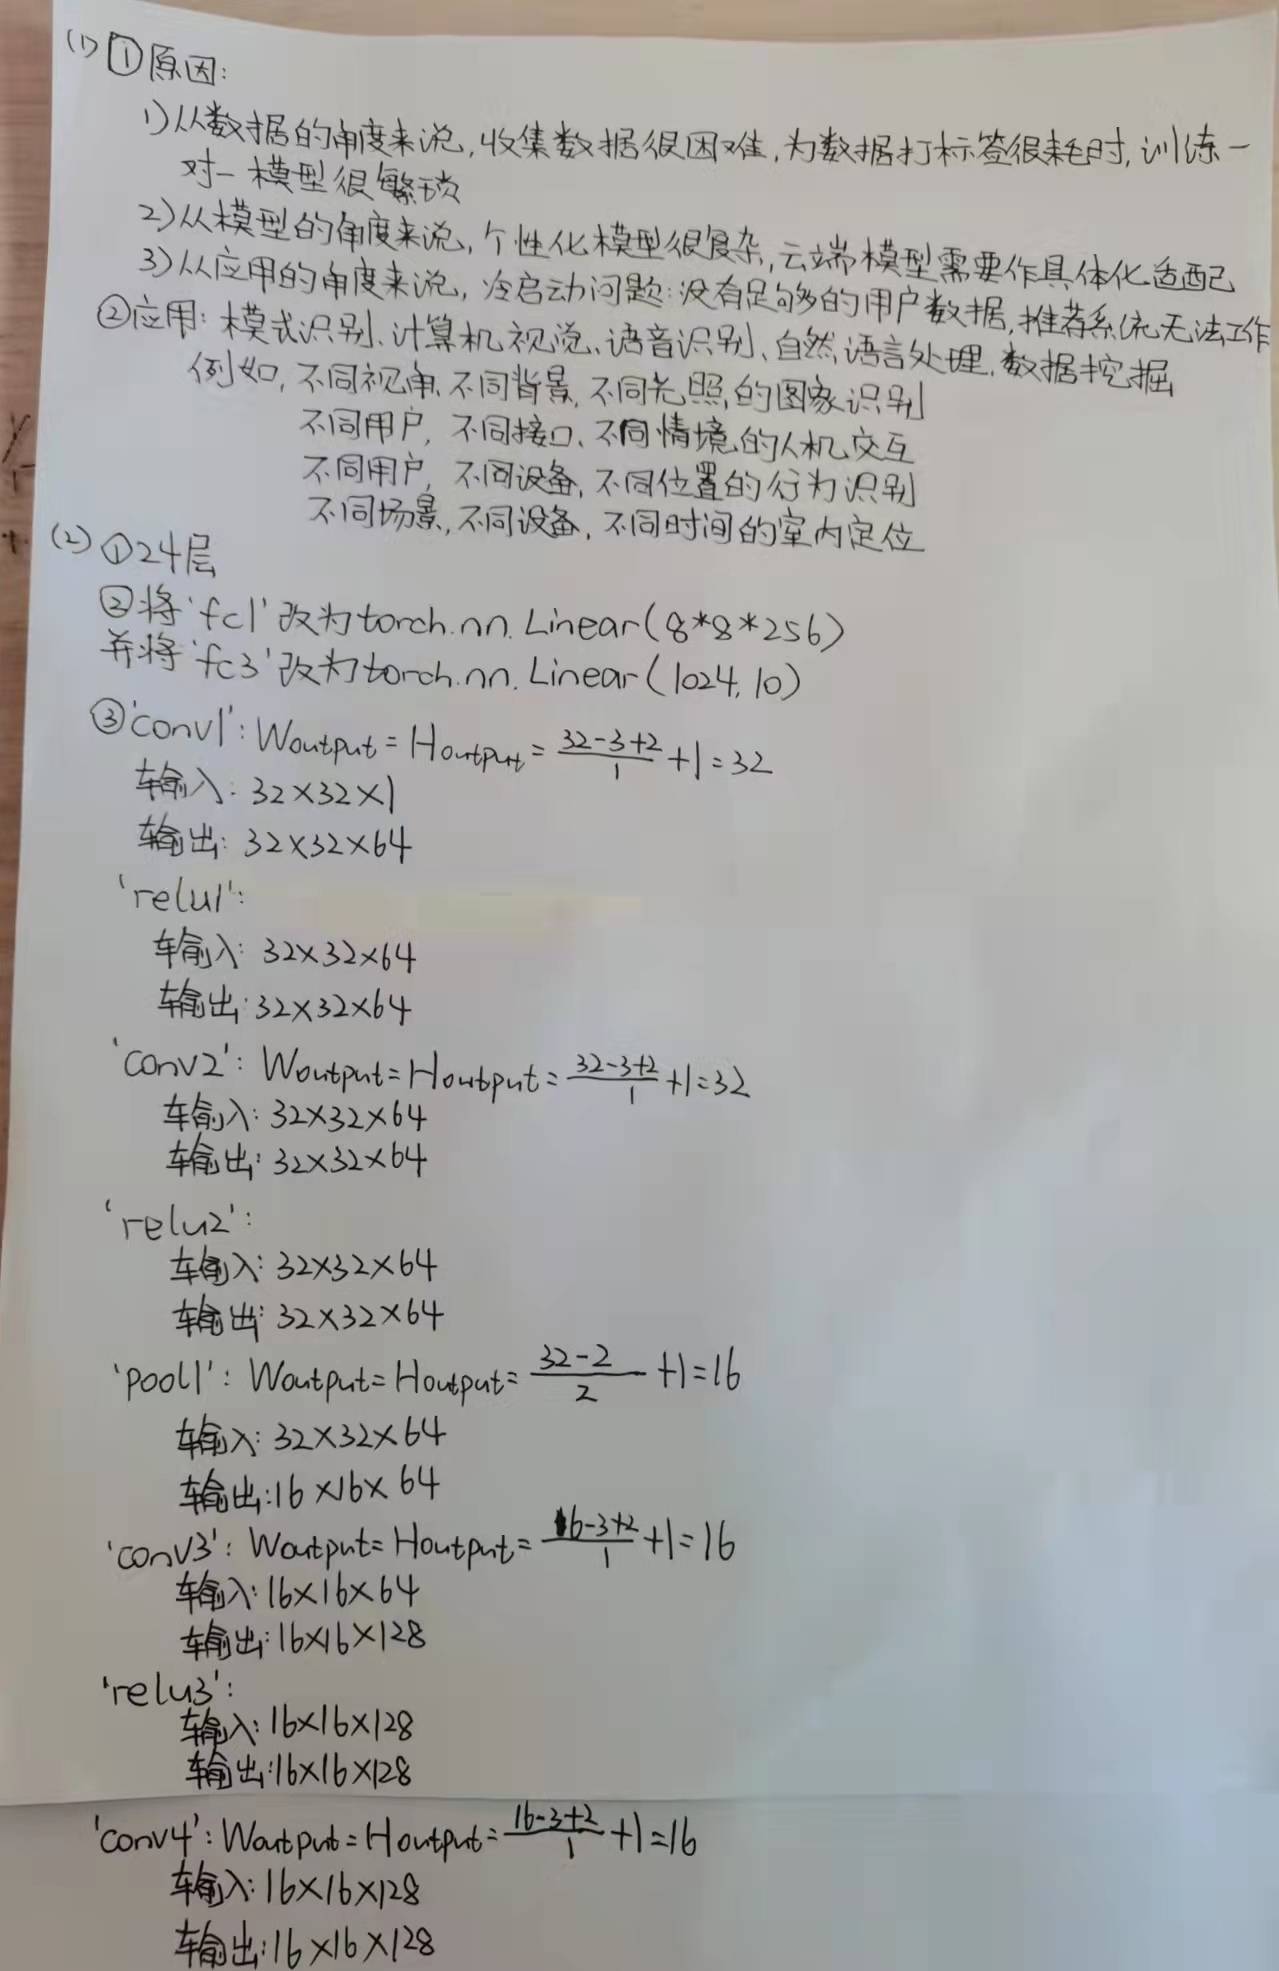 (1) ①原因:
1)从数据的角度来说,收集数据很困难,为数据打标签很耗时,训练一
对一模型很繁琐
2)从模型的角度来说,个性化模型很复杂,云端模型需要作具体化适配
3)从应用的角度来说,冷启动问题:没有足够的用户数据,推荐系统无法工作
②应用:模式识别、计算机视觉、语音识别、自然语言处理、数据挖掘
例如,不同视角、不同背景、不同光照的图象识别
不同用户,不同接口、不同情境的人机交互
不同用户,不同设备,不同位置的行为识别
不同场景,不同设备,不同时间的室内定位
(2) ①24层
②将'fc1'改为torch.nn.Linear(8*8*256)
并将'fc3'改为torch.nn.Linear(1024,10)
③'conv1': Woutput = Houtput = (32-3+2)/1 +1=32
输入: 32×32×1
输出: 32×32×64
'relu1':
输入: 32×32×64
输出: 32×32×64
'conv2': Woutput=Houtput= (32-3+2)/1 +1=32
输入: 32×32×64
输出: 32×32×64
'relu2':
输入: 32×32×64
输出: 32×32×64
'pool1': Woutput=Houtput= (32-2)/2 +1=16
输入: 32×32×64
输出:16×16×64
'conv3': Woutput=Houtput= (16-3+2)/1 +1=16
输入:16×16×64
输出:16×16×128
'relu3':
输入:16×16×128
输出:16×16×128
'conv4': Woutput=Houtput= (16-3+2)/1 +1=16
输入:16×16×128
输出:16×16×128